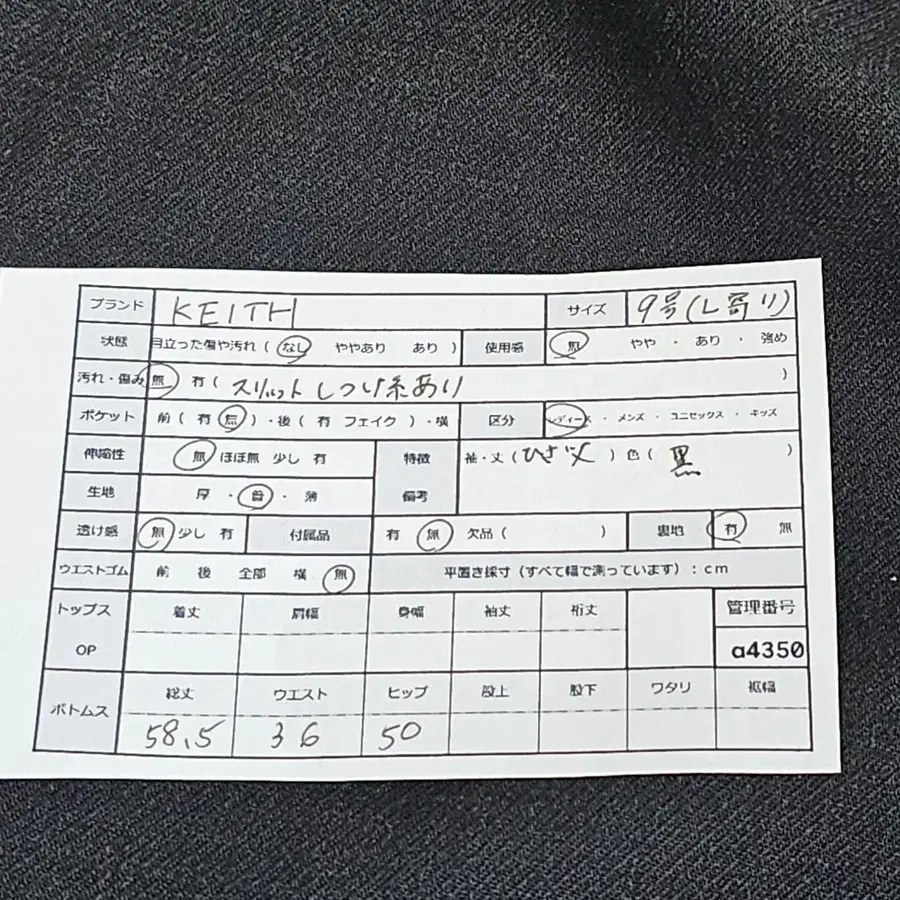 ブランド KEITH サイズ 9号(L寄り)
状態 目立った傷や汚れ ( なし ややあり あり ) 使用感 無 やや ・ あり ・ 強め
汚れ・傷み 無 有 ( スリットしつけ糸あり )
ポケット 前 ( 有 無 ) ・後 ( 有 フェイク ) ・横 区分 レディース ・ メンズ ・ ユニセックス ・ キッズ
伸縮性 無 ほぼ無 少し 有 特徴 袖・丈 ( ひざ丈 ) 色 ( 黒 )
生地 厚 ・ 普 ・ 薄 備考
透け感 無 少し 有 付属品 有 無 欠品 ( ) 裏地 有 無
ウエストゴム 前 後 全部 横 無 平置き採寸 (すべて幅で測っています) : cm
トップス 着丈 肩幅 身幅 袖丈 裄丈 管理番号
OP a4350
ボトムス 総丈 ウエスト ヒップ 股上 股下 ワタリ 裾幅
58.5 36 50